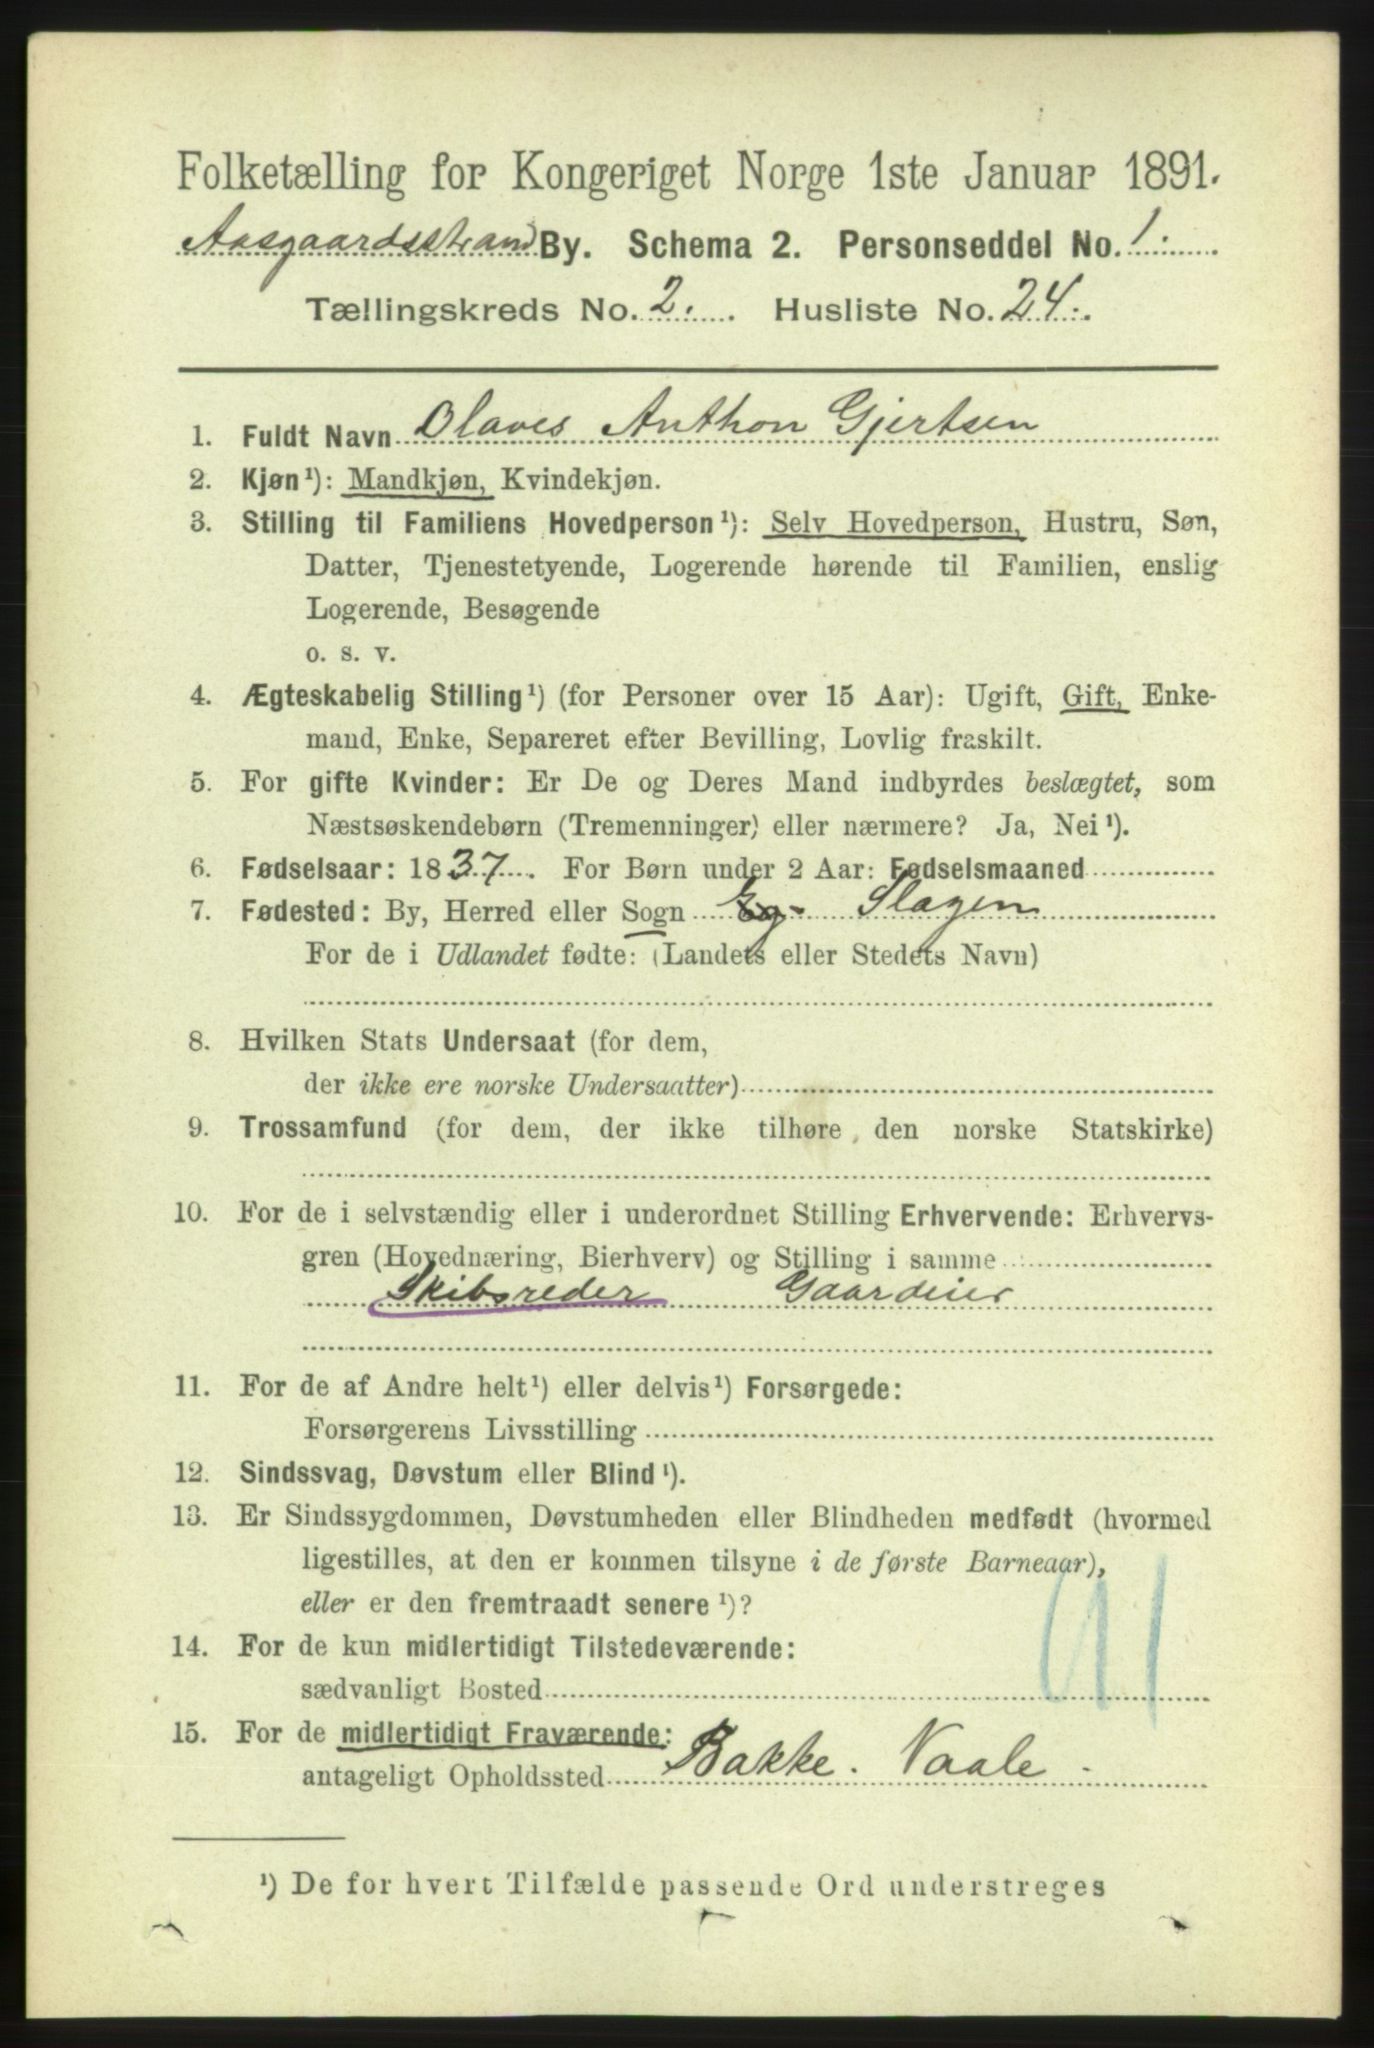 Folketælling for Kongeriget Norge 1ste Januar 1891.
Aasgaardsstrand By. Schema 2. Personseddel No. 1.
Tællingskreds No. 2. Husliste No. 24.
1. Fuldt Navn Olaves Anthon Gjertsen
2. Kjøn¹): Mandkjøn, Kvindekjøn.
3. Stilling til Familiens Hovedperson¹): Selv Hovedperson, Hustru, Søn,
Datter, Tjenestetyende, Logerende hørende til Familien, enslig
Logerende, Besøgende
o. s. v.
4. Ægteskabelig Stilling¹) (for Personer over 15 Aar): Ugift, Gift, Enke-
mand, Enke, Separeret efter Bevilling, Lovlig fraskilt.
5. For gifte Kvinder: Er De og Deres Mand indbyrdes beslægtet, som
Næstsøskendebørn (Tremenninger) eller nærmere? Ja, Nei¹).
6. Fødselsaar: 1837. For Børn under 2 Aar: Fødselsmaaned
7. Fødested: By, Herred eller Sogn Slagen
For de i Udlandet fødte: (Landets eller Stedets Navn)
8. Hvilken Stats Undersaat (for dem,
der ikke ere norske Undersaatter)
9. Trossamfund (for dem, der ikke tilhøre den norske Statskirke)
10. For de i selvstændig eller i underordnet Stilling Erhvervende: Erhvervs-
gren (Hovednæring, Bierhverv) og Stilling i samme
Skibsreder Gaardeier
11. For de af Andre helt¹) eller delvis¹) Forsørgede:
Forsørgerens Livsstilling
12. Sindssvag, Døvstum eller Blind¹).
13. Er Sindssygdommen, Døvstumheden eller Blindheden medfødt (hvormed
ligestilles, at den er kommen tilsyne i de første Barneaar),
eller er den fremtraadt senere¹)?
14. For de kun midlertidigt Tilstedeværende:
sædvanligt Bosted
15. For de midlertidigt Fraværende:
antageligt Opholdssted Bakke. Vaale.
¹) De for hvert Tilfælde passende Ord understreges